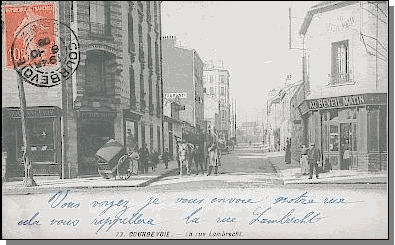 COURBEVOIE
AU BENEFIT MATIN
Vous voyez je vous envoie notre rue
cela vous rappellera la rue Lambrecht
13. COURBEVOIE — La rue Lambrecht.